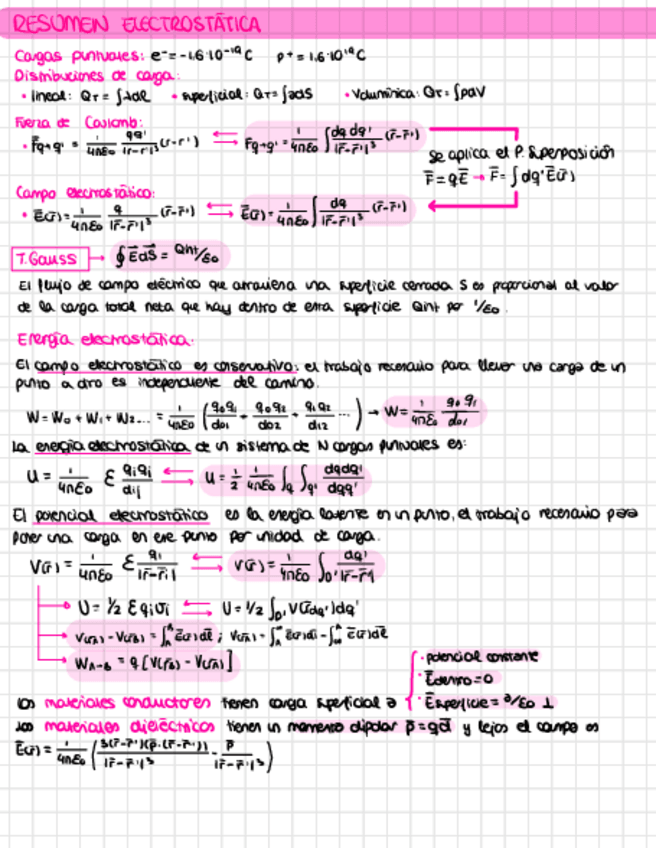 RESUMEN ELECTROSTÁTICA
Cargas puntuales: e⁻ = -1.6·10⁻¹⁹ C   p⁺ = 1.6·10¹⁹ C
Distribuciones de carga:
· lineal: Q_T = ∫λdl   · superficial: Q_T = ∫σdS   · Volumínica: Q_T = ∫ρdV
Fuerza de Coulomb:
· F̄q→q' = 1/4πε₀ qq'/|r-r'|³ (r-r') ⇄ Fq→q' = 1/4πε₀ ∫ dq dq'/|r̄-r̄'|³ (r̄-r̄')
Se aplica el P. Superposición
F̄ = qĒ → F̄ = ∫dq'Ē(r̄)
Campo electrostático:
· Ē(r̄) = 1/4πε₀ q/|r̄-r̄'|³ (r̄-r̄') ⇄ Ē(r̄) = 1/4πε₀ ∫ dq/|r̄-r̄'|³ (r̄-r̄')
T. Gauss → ∮ĒdS̄ = Qint/ε₀
El flujo de campo eléctrico que atraviesa una superficie cerrada S es proporcional al valor
de la carga total neta que hay dentro de esta superficie Qint por 1/ε₀.
Energía electrostática:
El campo electrostático es conservativo: el trabajo necesario para llevar una carga de un
punto a otro es independiente del camino.
W = W₀ + W₁ + W₂... = 1/4πε₀ (q₀q₁/d₀₁ + q₀q₂/d₀₂ + q₁q₂/d₁₂ ...) → W = 1/4πε₀ q₀q₁/d₀₁
La energía electrostática de un sistema de N cargas puntuales es:
U = 1/4πε₀ Σ qiqj/dij ⇄ U = 1/2 1/4πε₀ ∫q ∫q' dqdq'/dqq'
El potencial electrostático es la energía latente en un punto, el trabajo necesario para
poner una carga en ese punto por unidad de carga.
V(r̄) = 1/4πε₀ Σ qi/|r̄-r̄i| ⇄ V(r̄) = 1/4πε₀ ∫ dq'/|r̄-r̄'|
U = 1/2 Σqivi ⇄ U = 1/2 ∫ V(r̄dq')dq'
WA→B = q[V(r̄B) - V(r̄A)]
· potencial constante
· Ēdentro = 0
· Ēsuperficie = σ/ε₀ ⊥
Los materiales conductores tienen carga superficial σ
Los materiales dieléctricos tienen un momento dipolar p̄ = qd̄ y lejos el campo es
Ē(r̄) = 1/4πε₀ (3(r̄-r̄')(p̄·(r̄-r̄'))/|r̄-r̄'|⁵ - p̄/|r̄-r̄'|³)